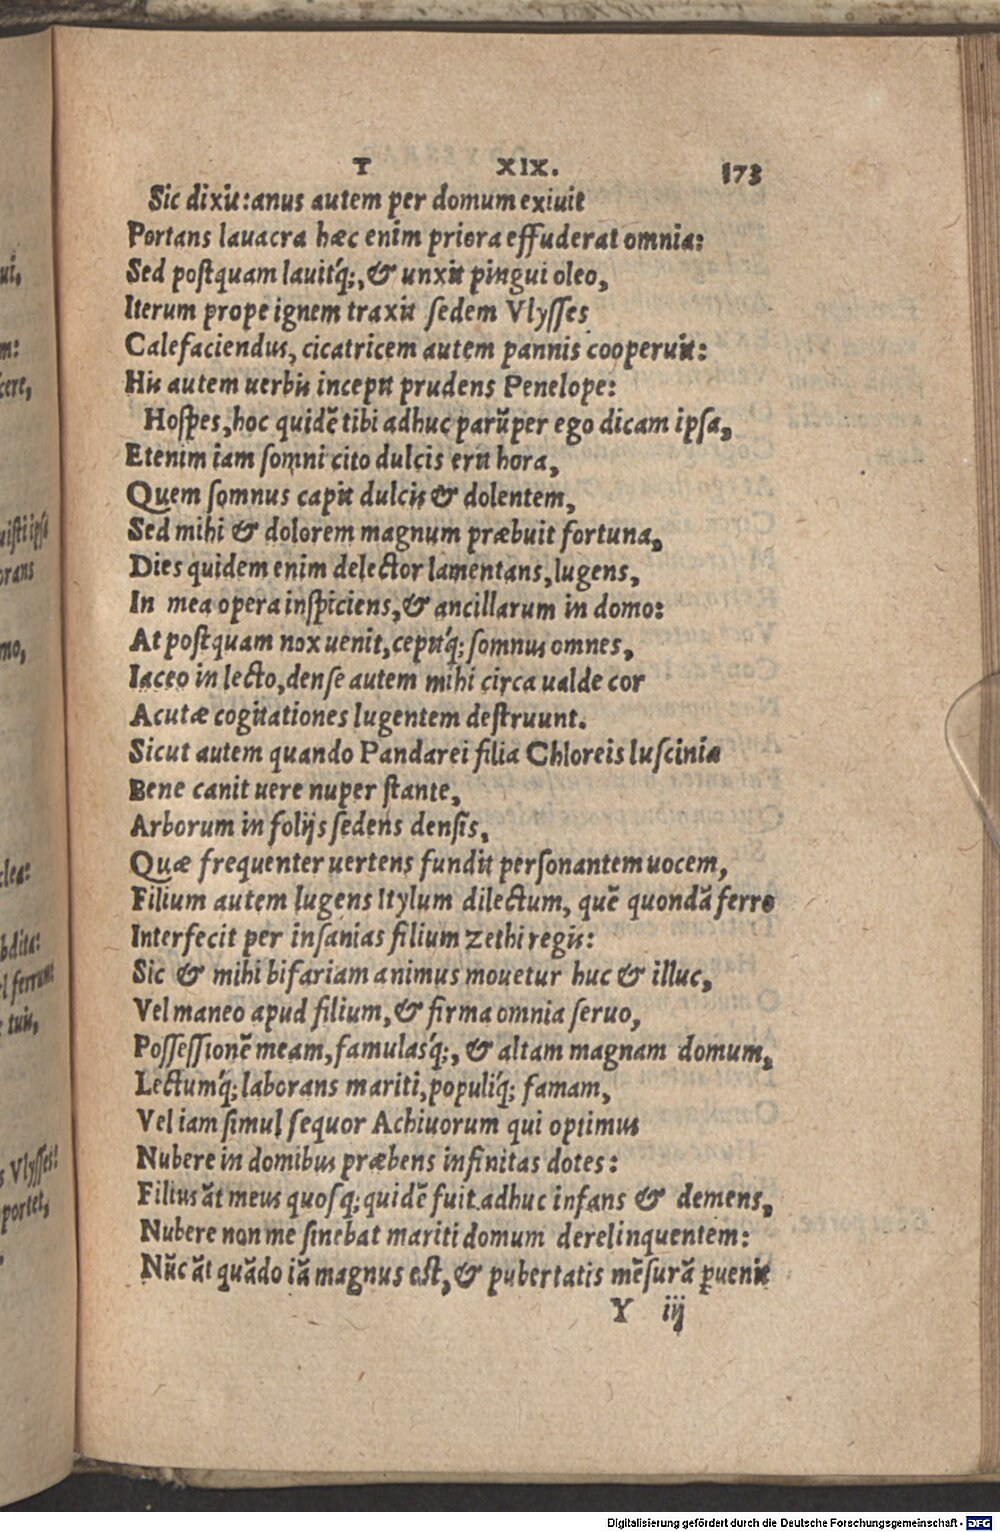 T XIX. 173
Sic dixit: anus autem per domum exiuit
Portans lauacra hæc enim priora effuderat omnia:
Sed postquam lauitq́;, & unxit pingui oleo,
Iterum prope ignem traxit sedem Vlysses
Calefaciendus, cicatricem autem pannis cooperuit:
His autem uerbis incepit prudens Penelope:
Hospes, hoc quidẽ tibi adhuc parũper ego dicam ipsa,
Etenim iam somni cito dulcis erit hora,
Quem somnus capit dulcis & dolentem,
Sed mihi & dolorem magnum præbuit fortuna,
Dies quidem enim delector lamentans, lugens,
In mea opera inspiciens, & ancillarum in domo:
At postquam nox uenit, cepitq́; somnus omnes,
Iaceo in lecto, dense autem mihi circa ualde cor
Acutæ cogitationes lugentem destruunt.
Sicut autem quando Pandarei filia Chloreis luscinia
Bene canit uere nuper stante,
Arborum in folijs sedens densis,
Quæ frequenter uertens fundit personantem uocem,
Filium autem lugens Itylum dilectum, quẽ quondã ferro
Interfecit per insanias filium Zethi regis:
Sic & mihi bifariam animus mouetur huc & illuc,
Vel maneo apud filium, & firma omnia seruo,
Possessionẽ meam, famulasq́;, & altam magnam domum,
Lectumq́; laborans mariti, populiq́; famam,
Vel iam simul sequor Achiuorum qui optimus
Nubere in domibus præbens infinitas dotes:
Filius ãt meus quosq; quidẽ fuit adhuc infans & demens,
Nubere non me sinebat mariti domum derelinquentem:
Nũc ãt quãdo iã magnus est, & pubertatis mẽsurã ꝑuenit
Y iij
Digitalisierung gefördert durch die Deutsche Forschungsgemeinschaft - DFG